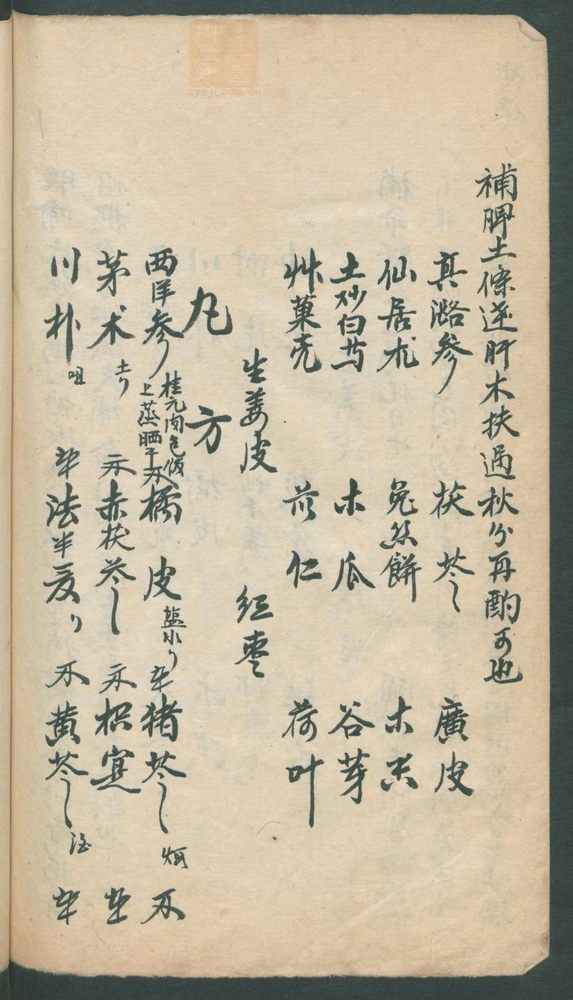 補脾土條達肝木扶過秋分再酌可也
真潞參 茯苓 廣皮
仙居朮 兔絲餅 木香
土炒白芍 木瓜 谷芽
艸菓壳 苡仁 荷叶
生姜皮 紅枣
丸方
西洋參 桂元肉包飯上蒸晒干 橘皮 塩水 猪苓
茅朮 赤茯苓 枳寔
川朴 法半夏 黄芩